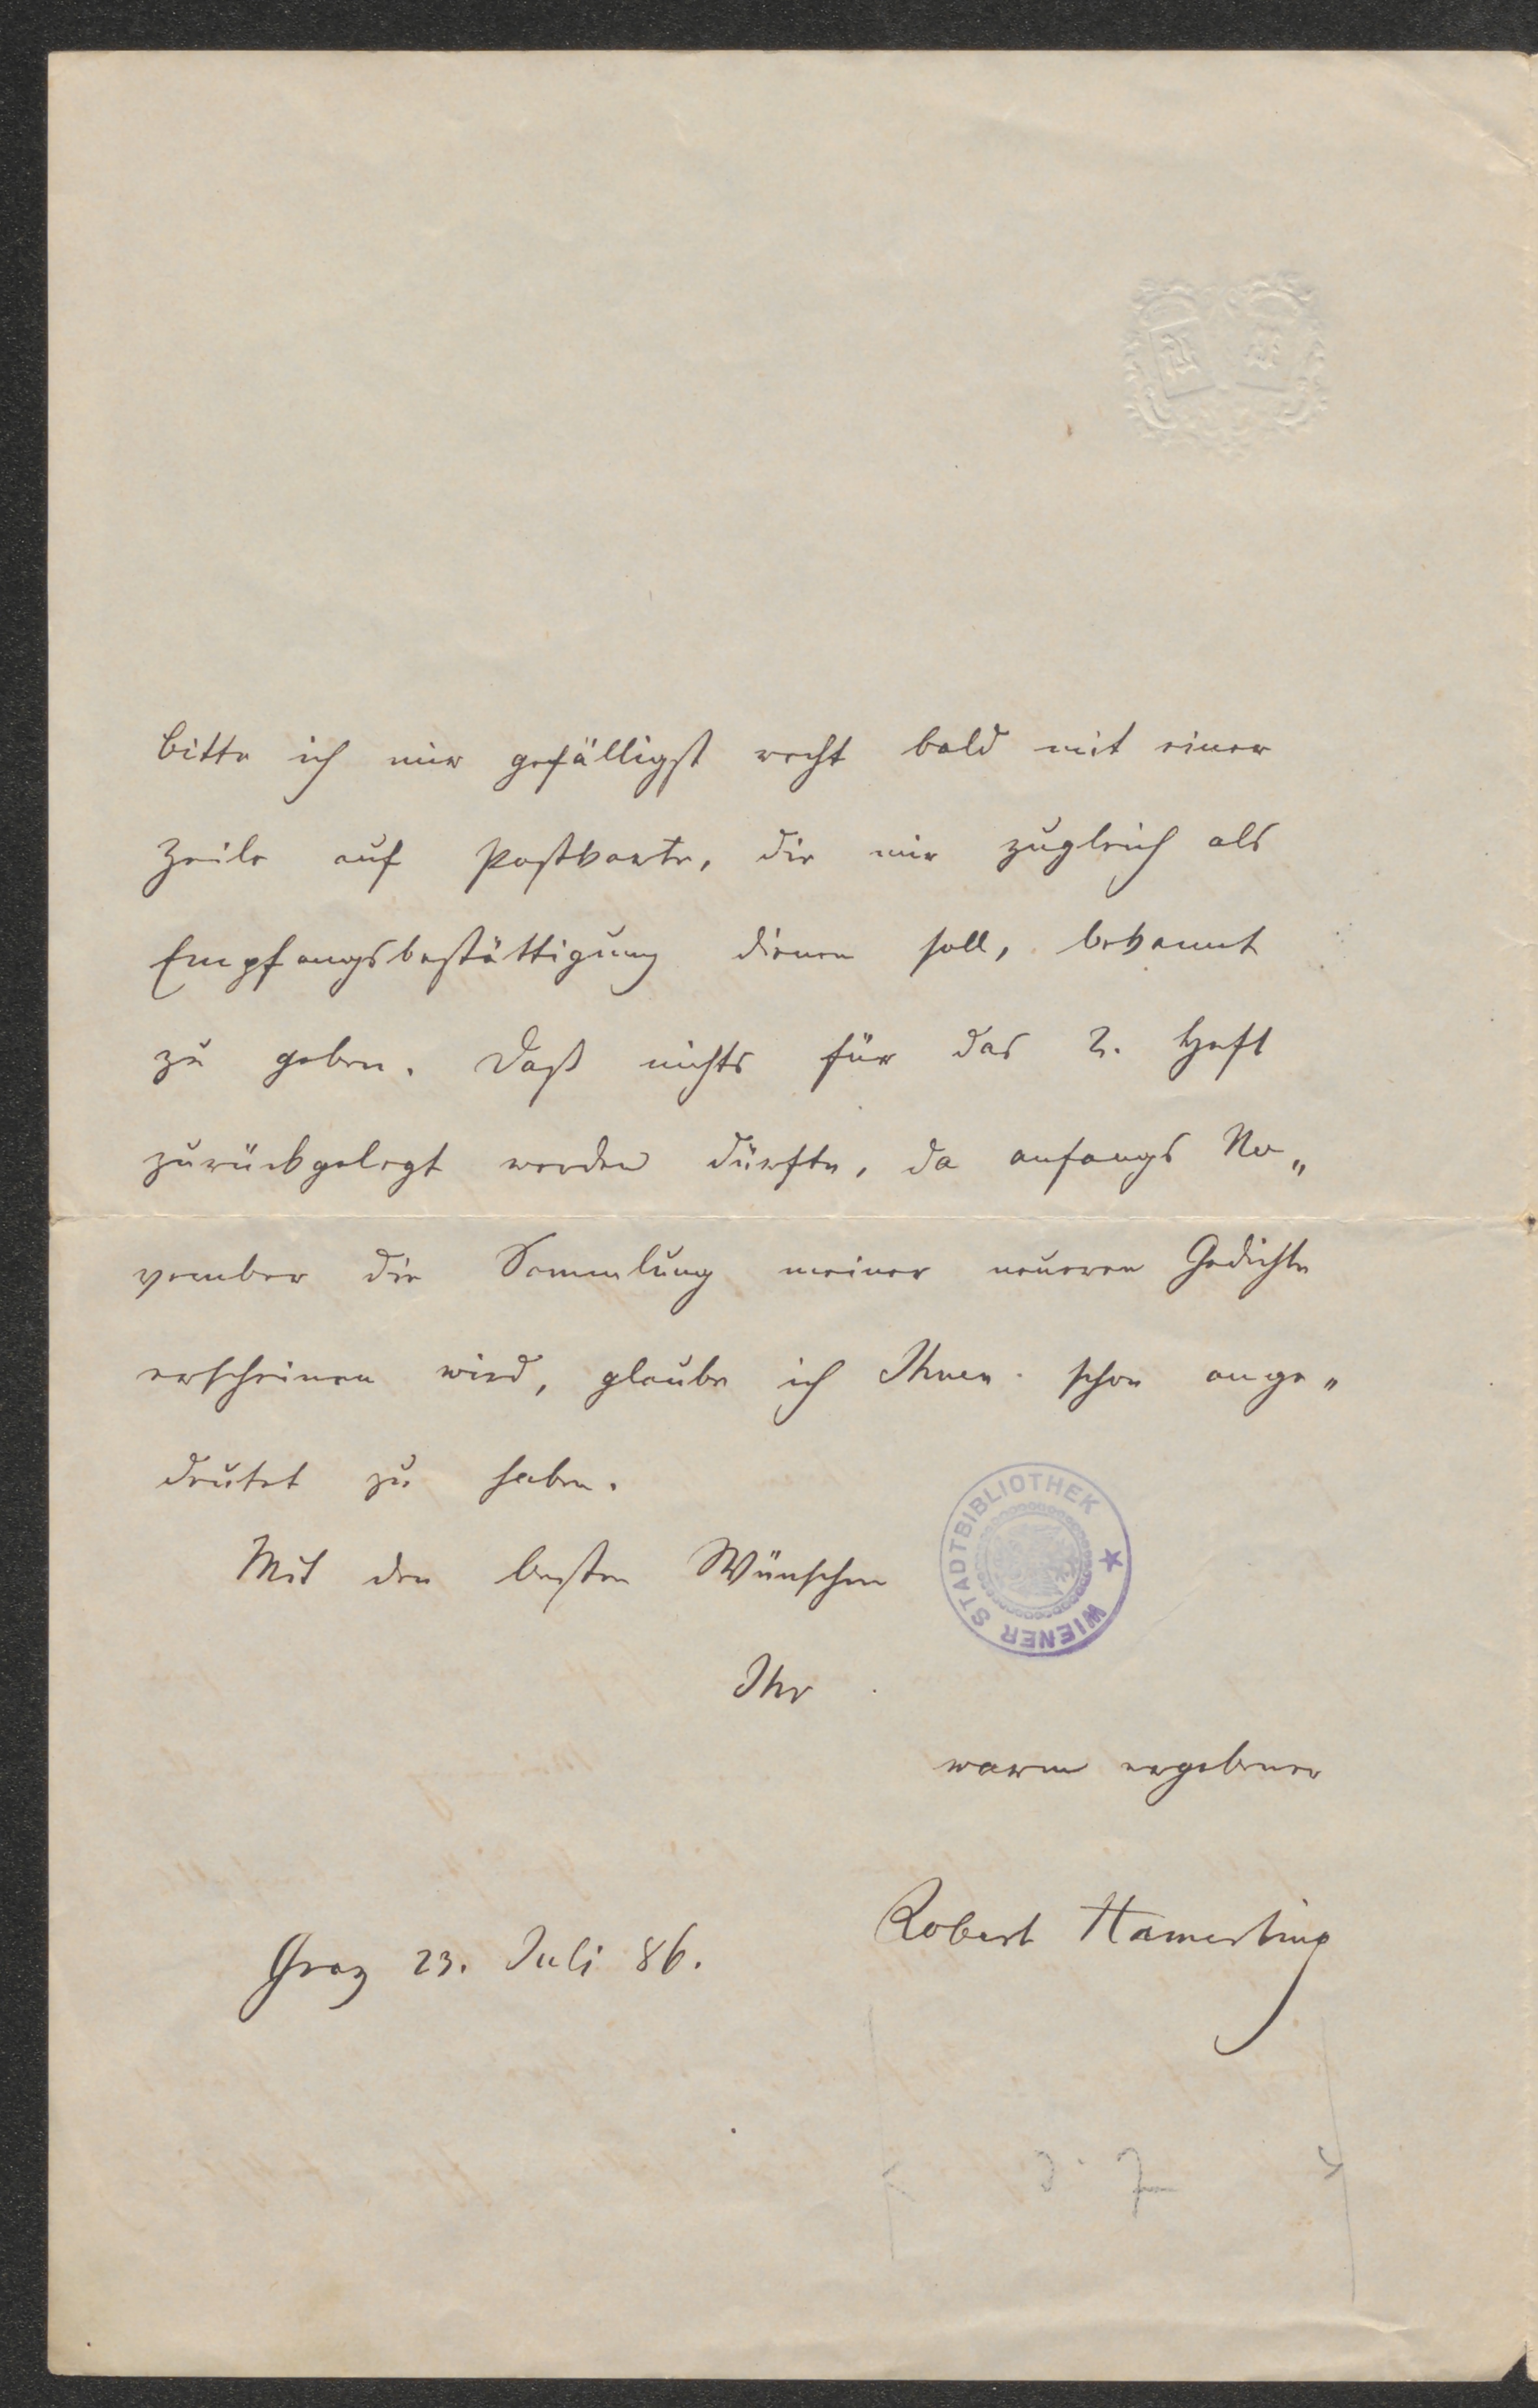 bitte ich mir gefälligst recht bald mit einer
Zeile auf Postkarte, die mir zugleich als
Empfangsbestättigung dienen soll, bekannt
zu geben. Daß nichts für das 2. Heft
zurückgelegt werden dürfte, da anfangs No„
vember die Sammlung meiner neueren Gedichte
erscheinen wird, glaube ich Ihnen schon ange„
deutet zu haben.
Mit den besten Wünschen
WIENER STADTBIBLIOTHEK
Ihr
warm ergebener
Robert Hamerling
Graz 23. Juli 86.